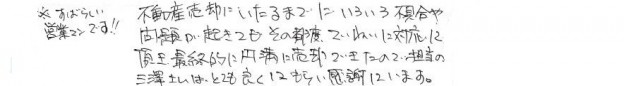 ※すばらしい
営業マンです!!
不動産売却にいたるまでにいろいろ不具合や
問題が起きてもその都度ていねいに対応し
頂き最終的に円満に売却できたので担当の
三澤さんは、とても良くしてもらい感謝しています。